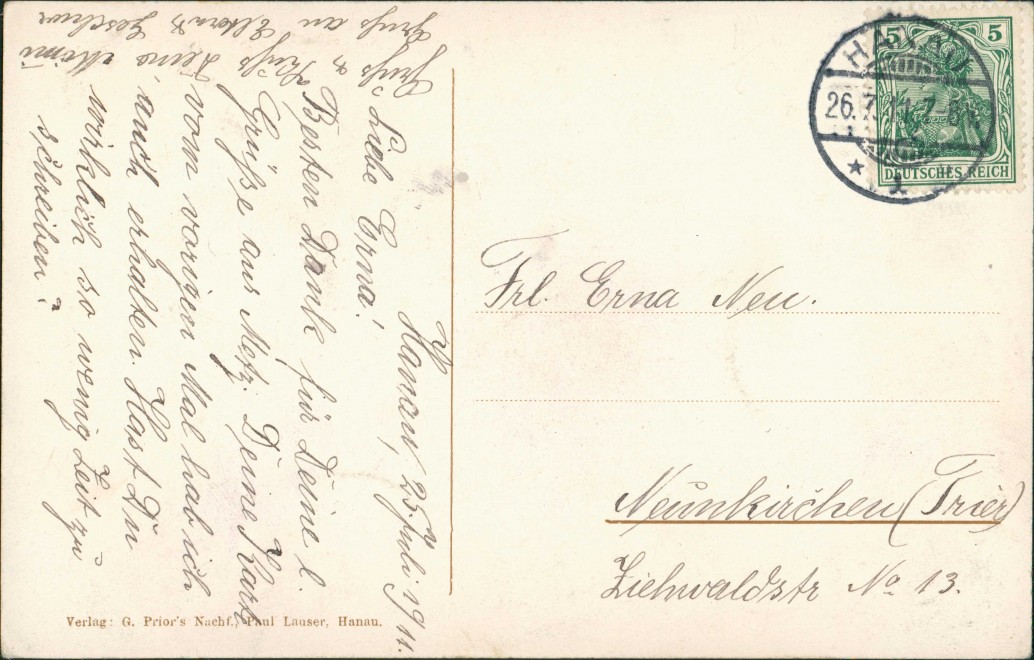 Hanau, 25. Juli 1911.
Liebe Erna!
Besten Dank für Deine l.
Grüße aus Metz. Deine Karte
vom vorigen Mal hab ich
auch erhalten. Hast Du
wirklich so wenig Zeit zu
schreiben?
Gruß
Gruß an Eltern
HANAU
26.7.11.7-8
* 1
5 5
DEUTSCHES REICH
Frl. Erna Neu.
Neunkirchen (Trier)
Ziehwaldstr No 13.
Verlag: G. Prior's Nachf., Paul Lauser, Hanau.